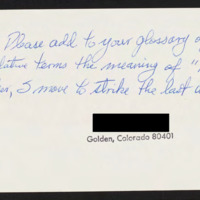 Please add to your glossary o
lative terms the meaning of "
I move to strike the last w
Golden, Colorado 80401